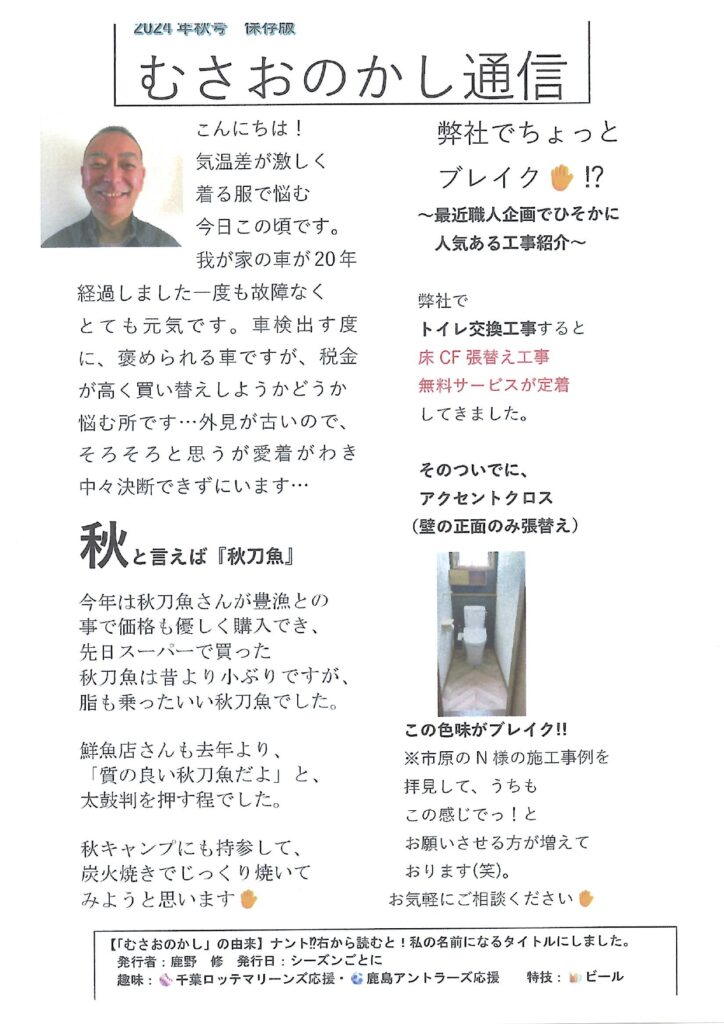 2024年秋号　保存版
むさおのかし通信
こんにちは！
気温差が激しく
着る服で悩む
今日この頃です。
我が家の車が20年
経過しました一度も故障なく
とても元気です。車検出す度
に、褒められる車ですが、税金
が高く買い替えしようかどうか
悩む所です…外見が古いので、
そろそろと思うが愛着がわき
中々決断できずにいます…
秋と言えば『秋刀魚』
今年は秋刀魚さんが豊漁との
事で価格も優しく購入でき、
先日スーパーで買った
秋刀魚は昔より小ぶりですが、
脂も乗ったいい秋刀魚でした。
鮮魚店さんも去年より、
「質の良い秋刀魚だよ」と、
太鼓判を押す程でした。
秋キャンプにも持参して、
炭火焼きでじっくり焼いて
みようと思います✋
弊社でちょっと
ブレイク✋⁉
～最近職人企画でひそかに
人気ある工事紹介～
弊社で
トイレ交換工事すると
床CF張替え工事
無料サービスが定着
してきました。
そのついでに、
アクセントクロス
（壁の正面のみ張替え）
この色味がブレイク‼
※市原のN様の施工事例を
拝見して、うちも
この感じでっ！と
お願いさせる方が増えて
おります(笑)。
お気軽にご相談ください✋
【「むさおのかし」の由来】ナント⁉右から読むと！私の名前になるタイトルにしました。
発行者：鹿野　修　発行日：シーズンごとに
趣味：⚾千葉ロッテマリーンズ応援・⚽鹿島アントラーズ応援　特技：🍺ビール